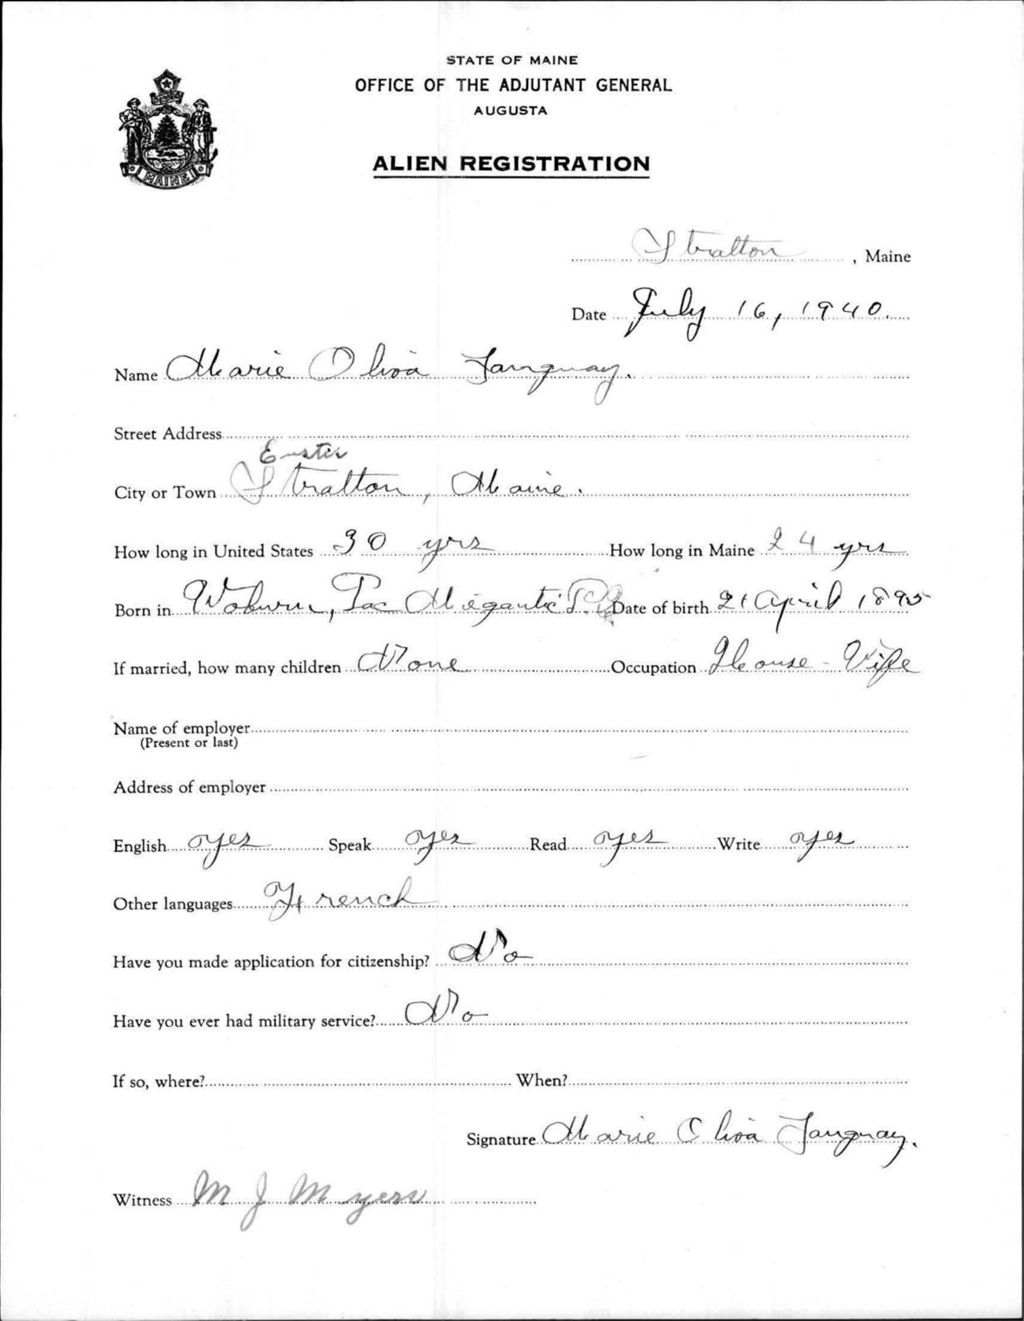 STATE OF MAINE
OFFICE OF THE ADJUTANT GENERAL
AUGUSTA
MAINE
ALIEN REGISTRATION
Stratton, Maine
Date July 16, 1940.
Name Marie Oliva Tanguay.
Street Address
Eustis
City or Town Stratton, Maine.
How long in United States 30 yrs How long in Maine 24 yrs
Born in Woburn, Lac Mégantic P.Q. Date of birth 21 April 1895
If married, how many children None Occupation House-Wife
Name of employer
(Present or last)
Address of employer
English yes Speak yes Read yes Write yes
Other languages French
Have you made application for citizenship? No
Have you ever had military service? No
If so, where? When?
Signature Marie Oliva Tanguay.
Witness M J Myers